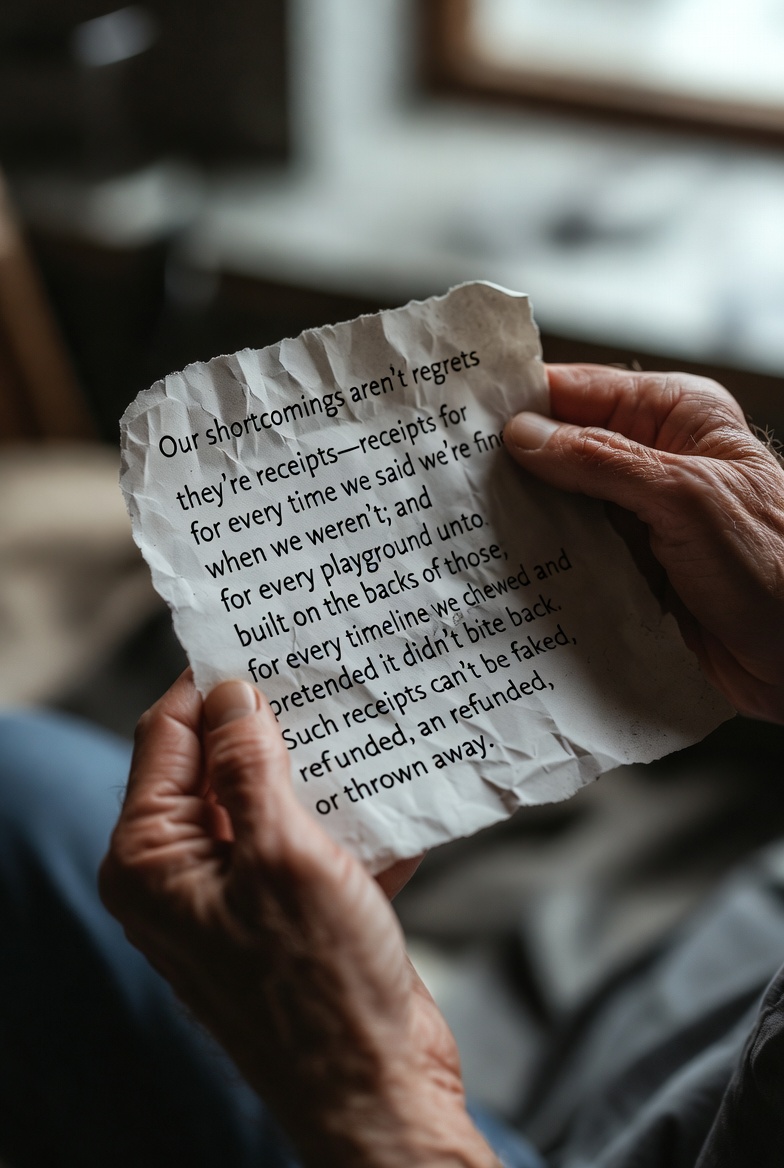 Our shortcomings aren't regrets
they're receipts—receipts for
for every time we said we're fine
when we weren't; and
for every playground unto.
built on the backs of those,
for every timeline we chewed and
pretended it didn't bite back.
Such receipts can't be faked,
refunded, an refunded,
or thrown away.